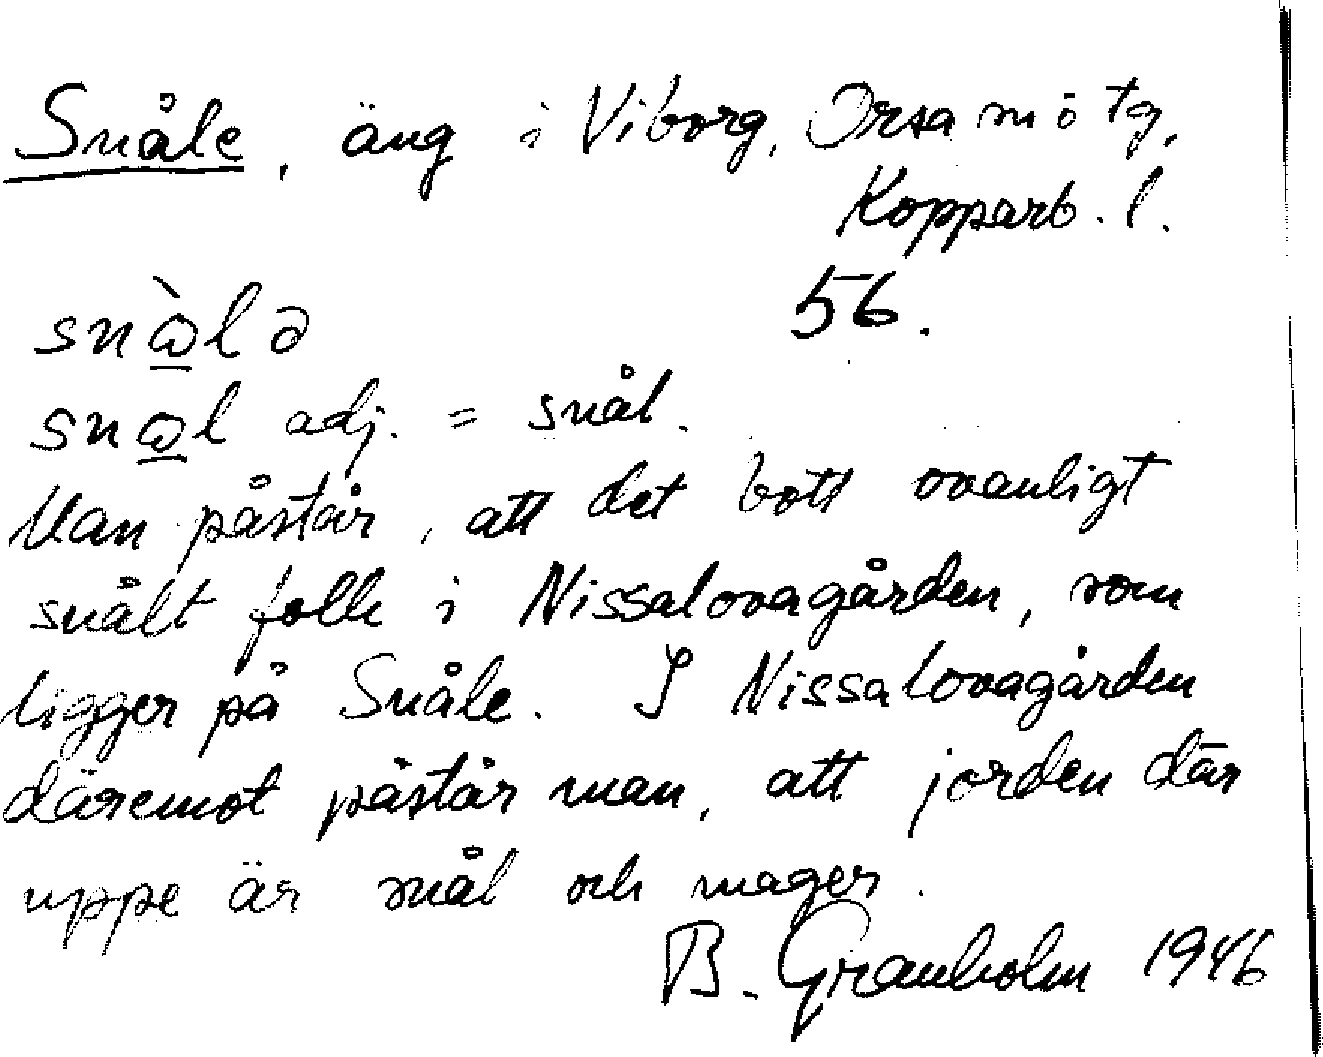 Snåle, äng i Viborg, Orsa sn ö tg,
Kopparb. l.
56.
snὼ̲lə
snω̲l adj. = snål.
Man påstår, att det bott ovanligt
snålt folk i Nissalovagården, som
ligger på Snåle. I Nissalovagården
däremot påstår man, att jorden där
uppe är snål och mager.
B. Granholm 1946